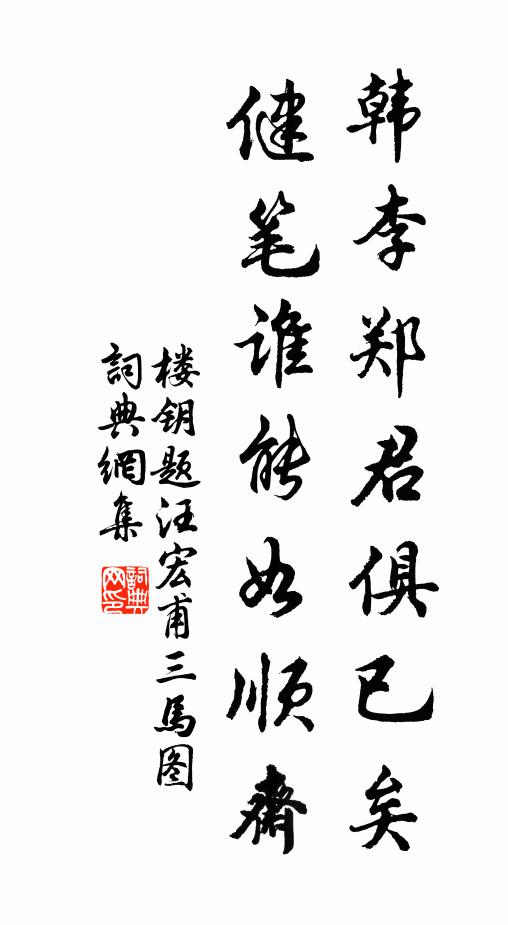 韩李郑君俱已矣
健笔谁能如顺齋
楼钥题汪宏甫三馬图
詞典網集
詞典网印